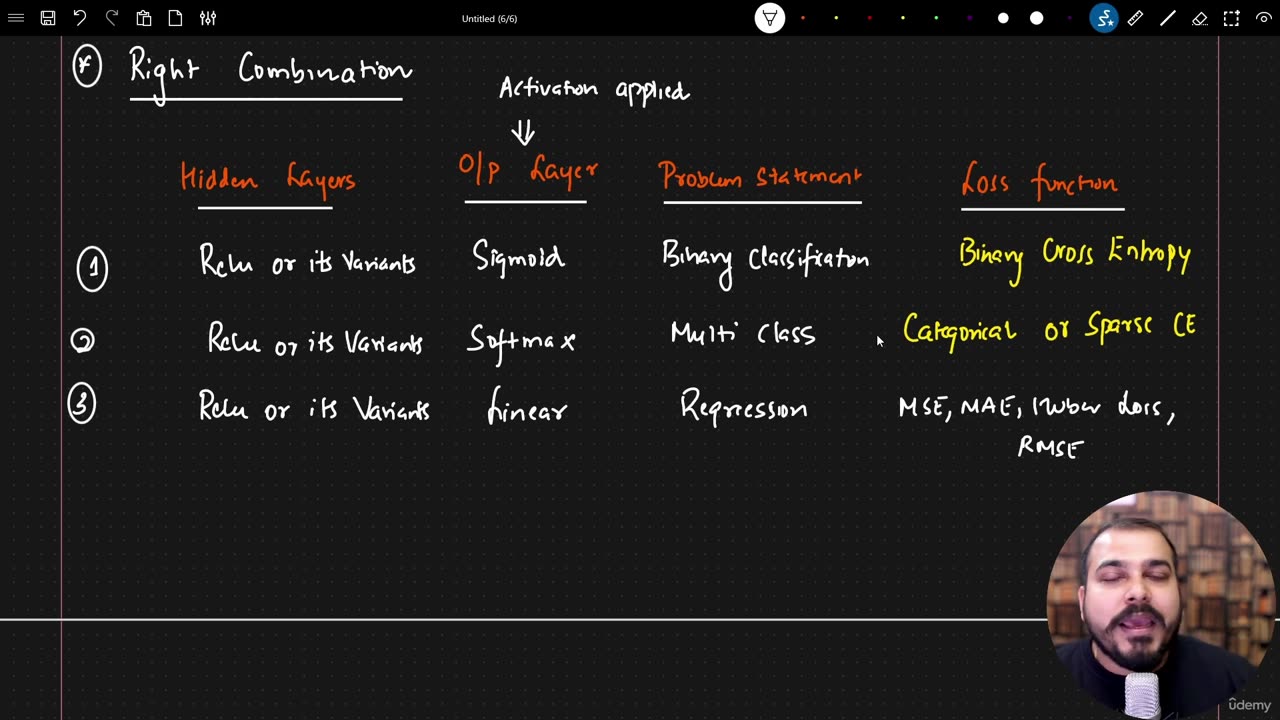 Untitled (6/6)
* Right Combination
Activation applied
Hidden Layers O/P Layer Problem Statement Loss function
1 Relu or its Variants Sigmoid Binary Classification Binary Cross Entropy
2 Relu or its Variants Softmax Multi Class Categorical or Sparse CE
3 Relu or its Variants Linear Regression MSE, MAE, Huber Loss,
RMSE
ûdemy